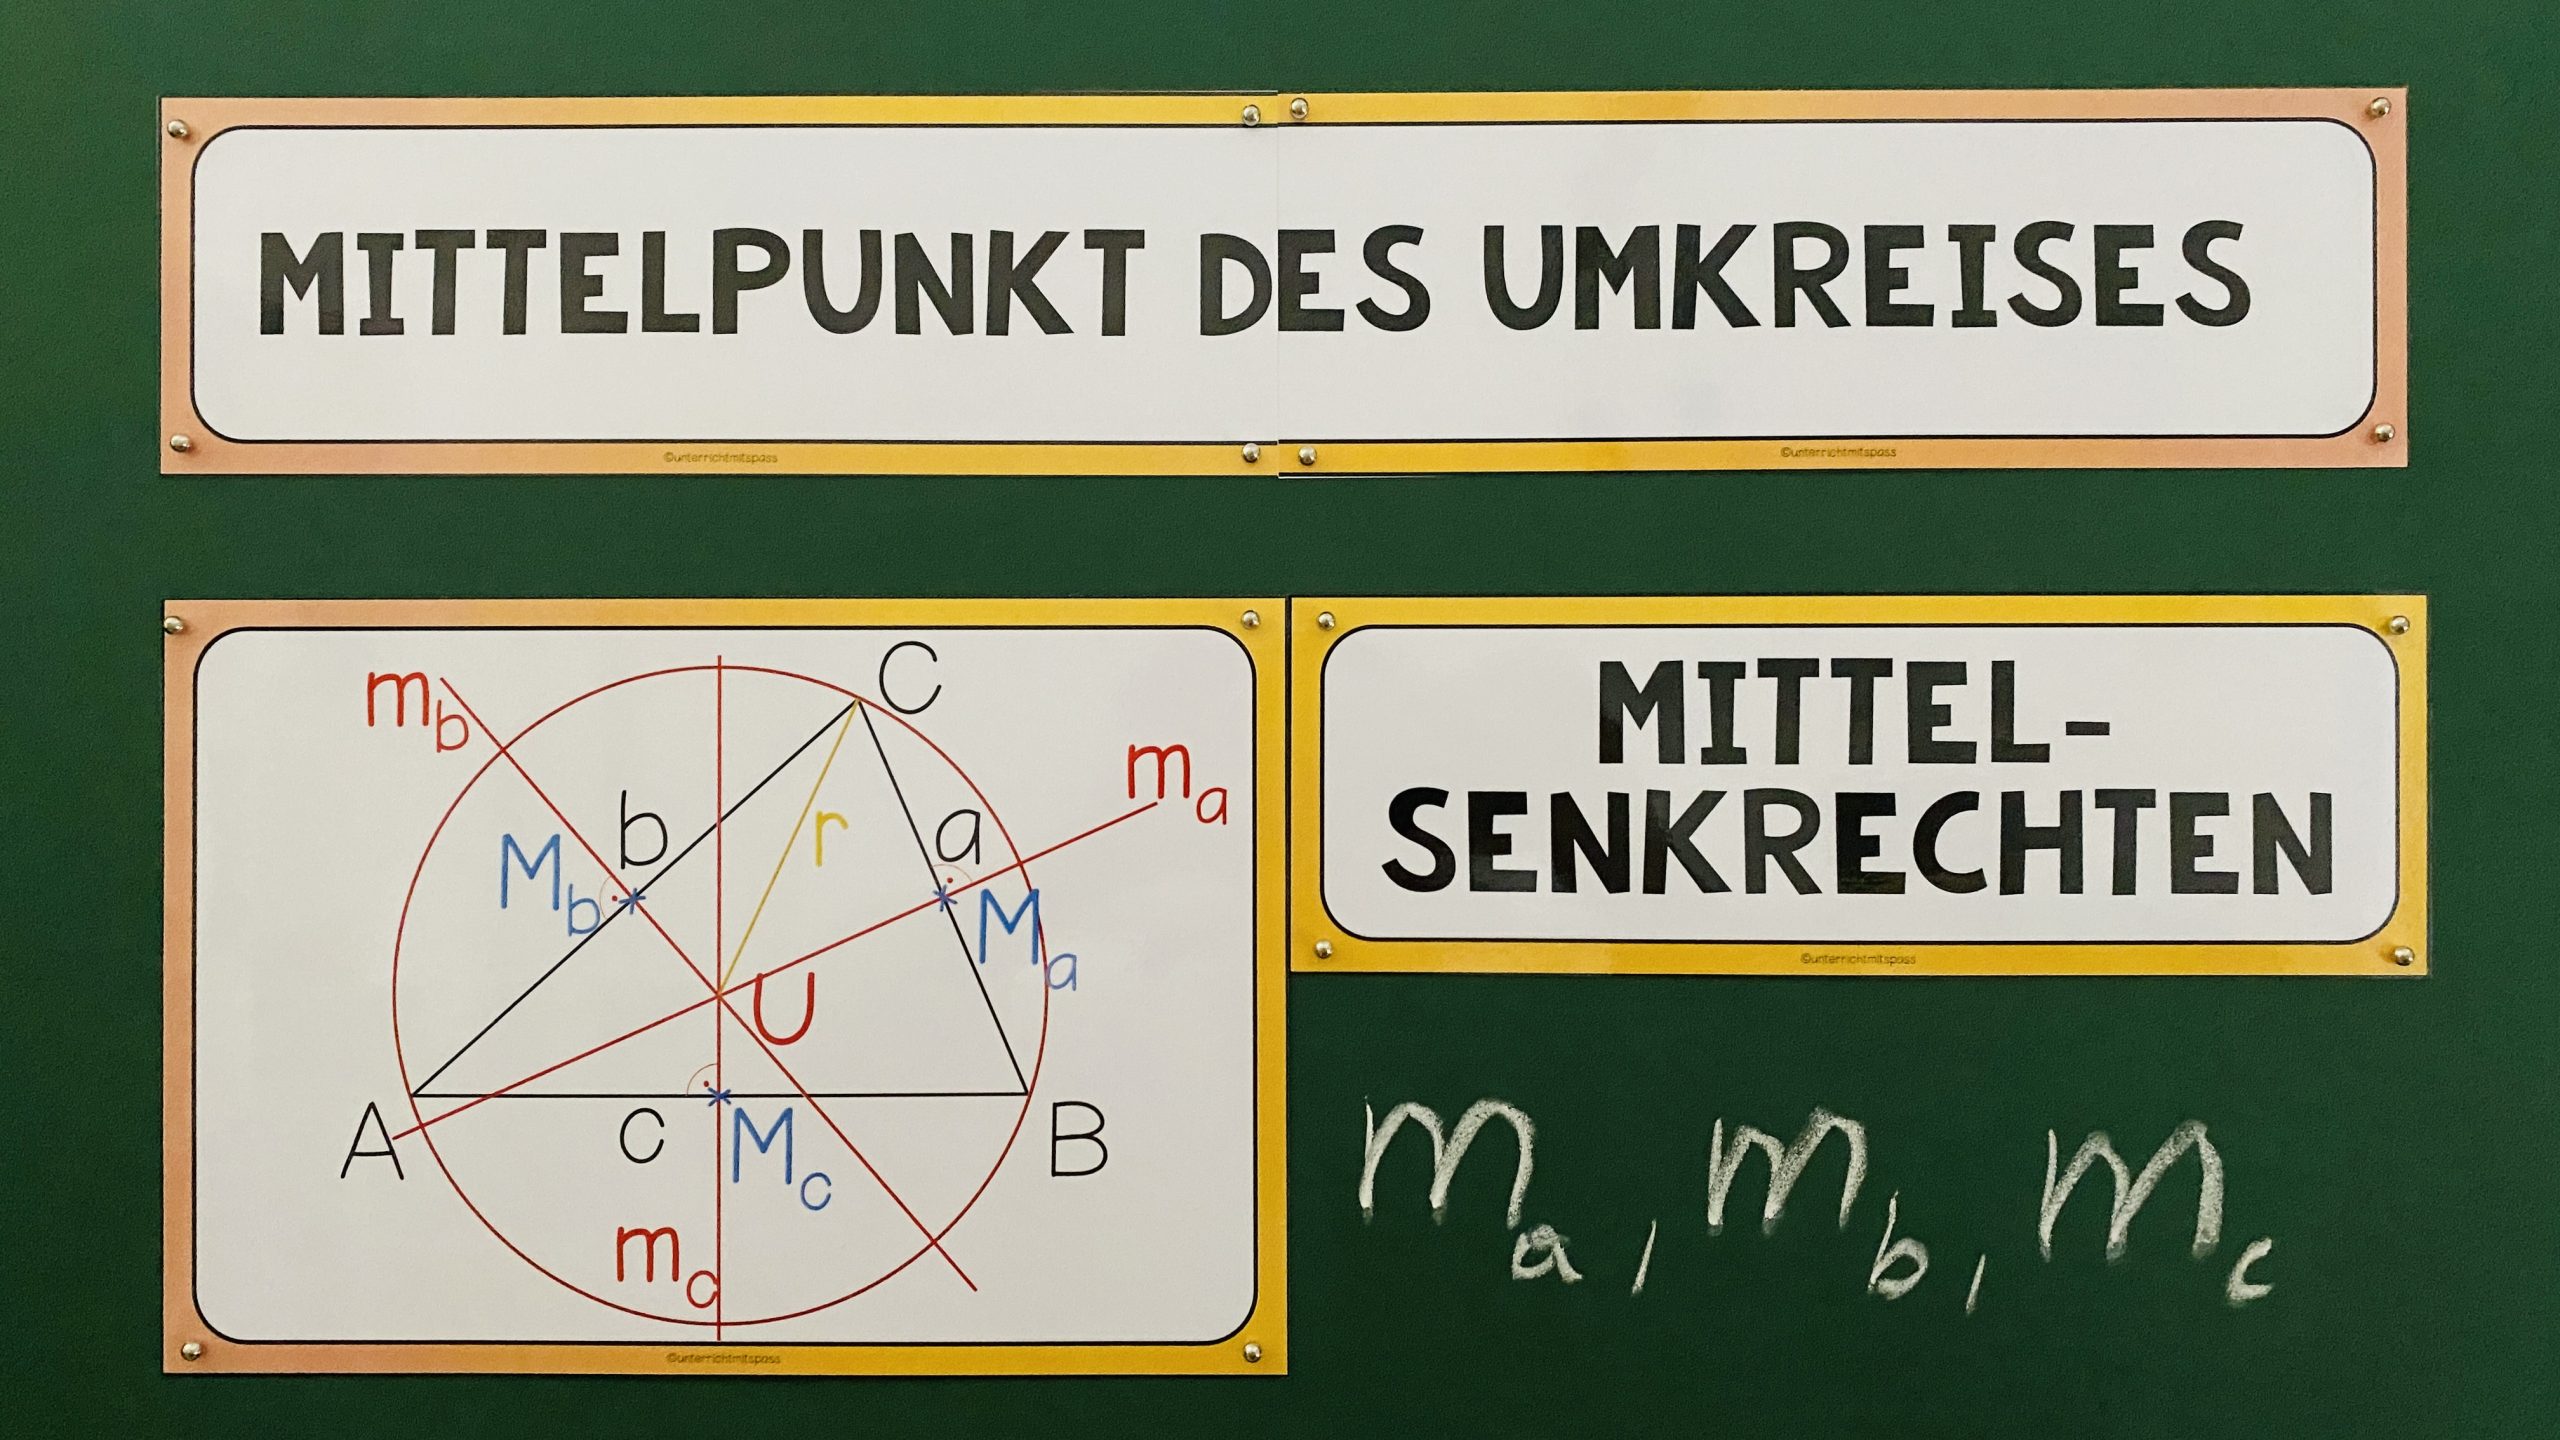 MITTELPUNKT DES UMKREISES
©unterrichtmitspass ©unterrichtmitspass
MITTEL-
SENKRECHTEN
©unterrichtmitspass
C
m_b
m_a
b
r
a
M_b
M_a
U
A
c
M_c
B
m_c
©unterrichtmitspass
m_a, m_b, m_c